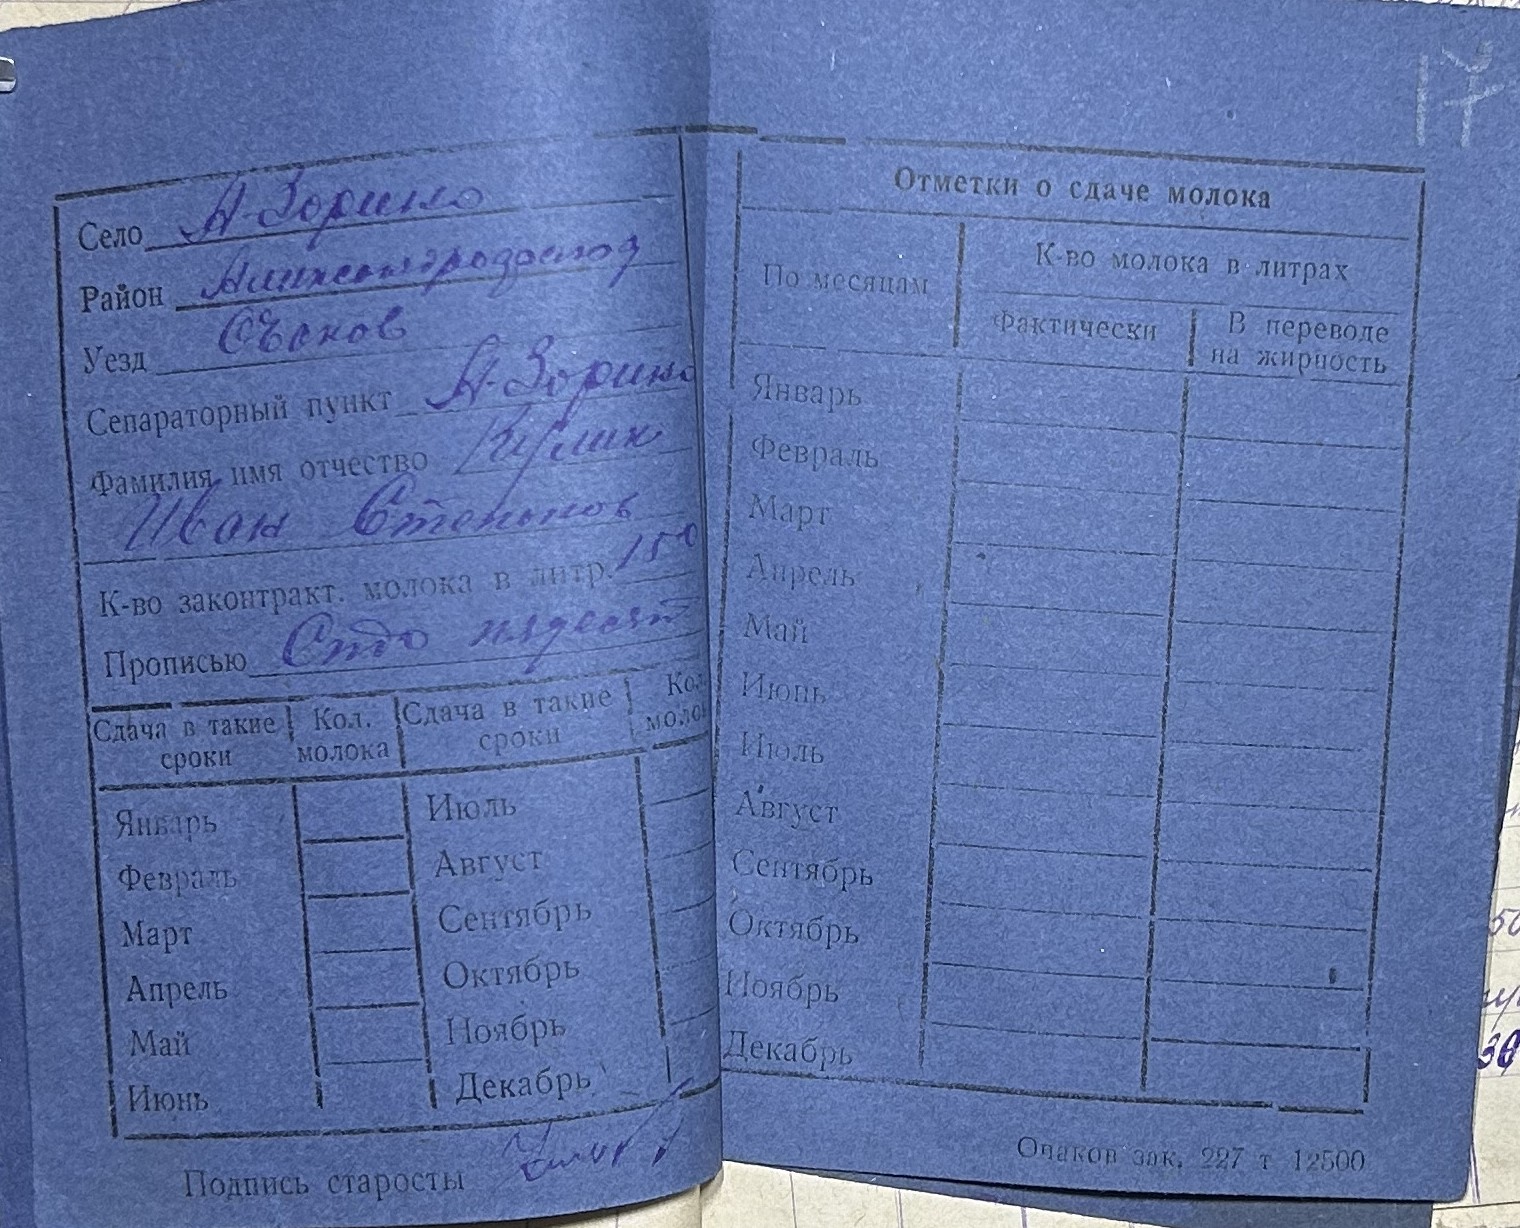 17
Село А-Зорино
Район
Уезд
Сепараторный пункт А-Зорино
Фамилия имя отчество Кулик
Иван Степанов
К-во законтракт. молока в литр. 150
Прописью Сто пядесят
Сдача в такие сроки Кол. молока Сдача в такие сроки Кол молок
Январь Июль
Февраль Август
Март Сентябрь
Апрель Октябрь
Май Ноябрь
Июнь Декабрь
Подпись старосты
Отметки о сдаче молока
По месяцам К-во молока в литрах
Фактически В переводе на жирность
Январь
Февраль
Март
Апрель
Май
Июнь
Июль
Август
Сентябрь
Октябрь
Ноябрь
Декабрь
Опаков зак. 227 т 12500